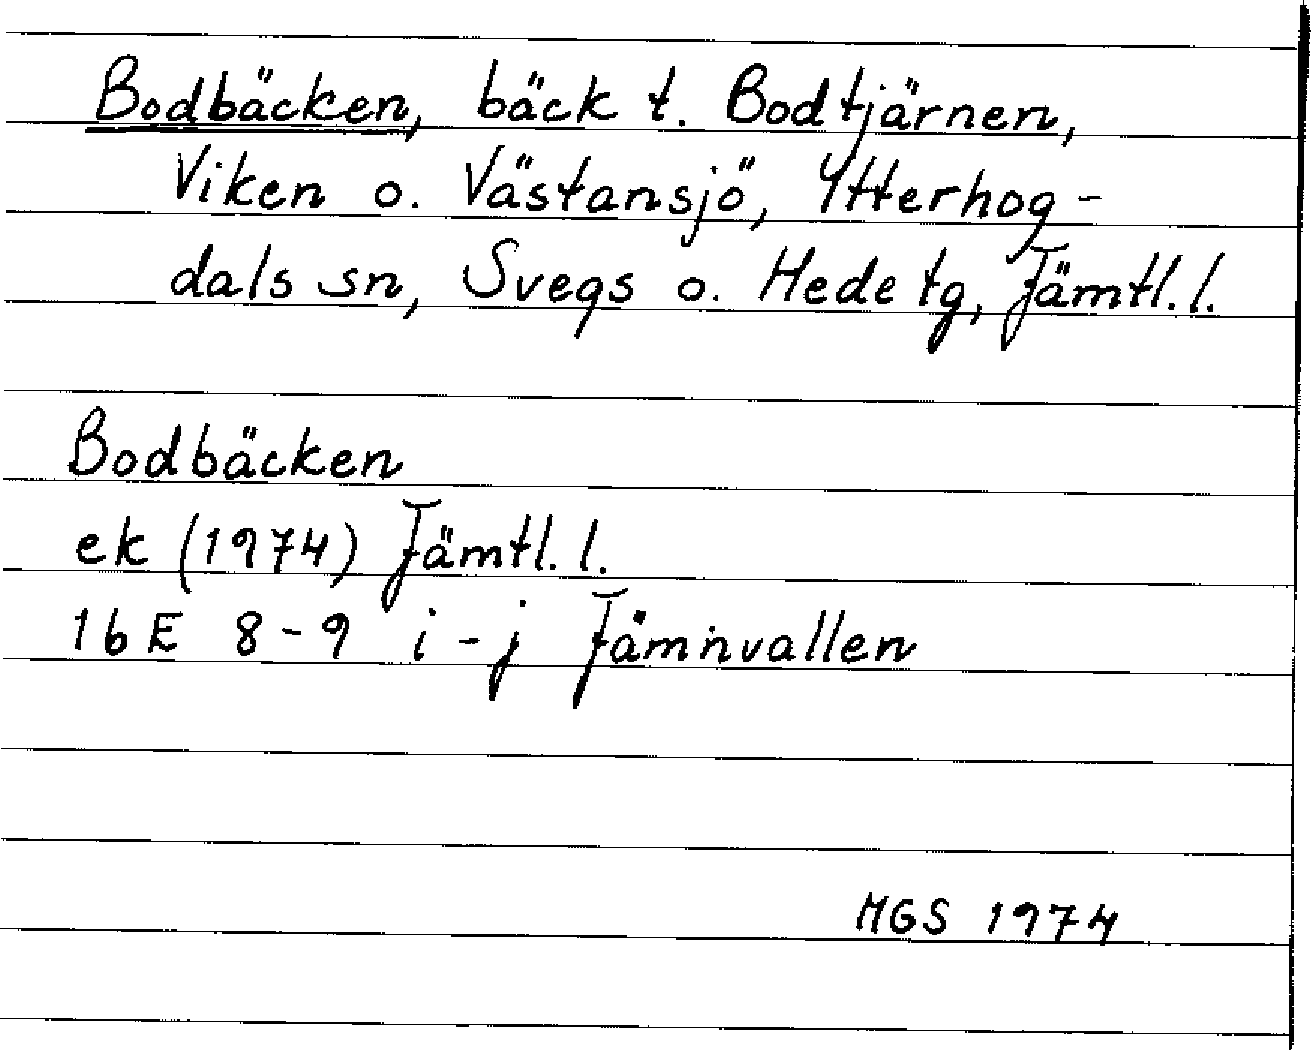 Bodbäcken, bäck t. Bodtjärnen,
Viken o. Västansjö, Ytterhog-
dals sn, Svegs o. Hede tg, Jämtl. l.
Bodbäcken
ek (1974) Jämtl. l.
16E 8-9 i-j Jämnvallen
MGS 1974